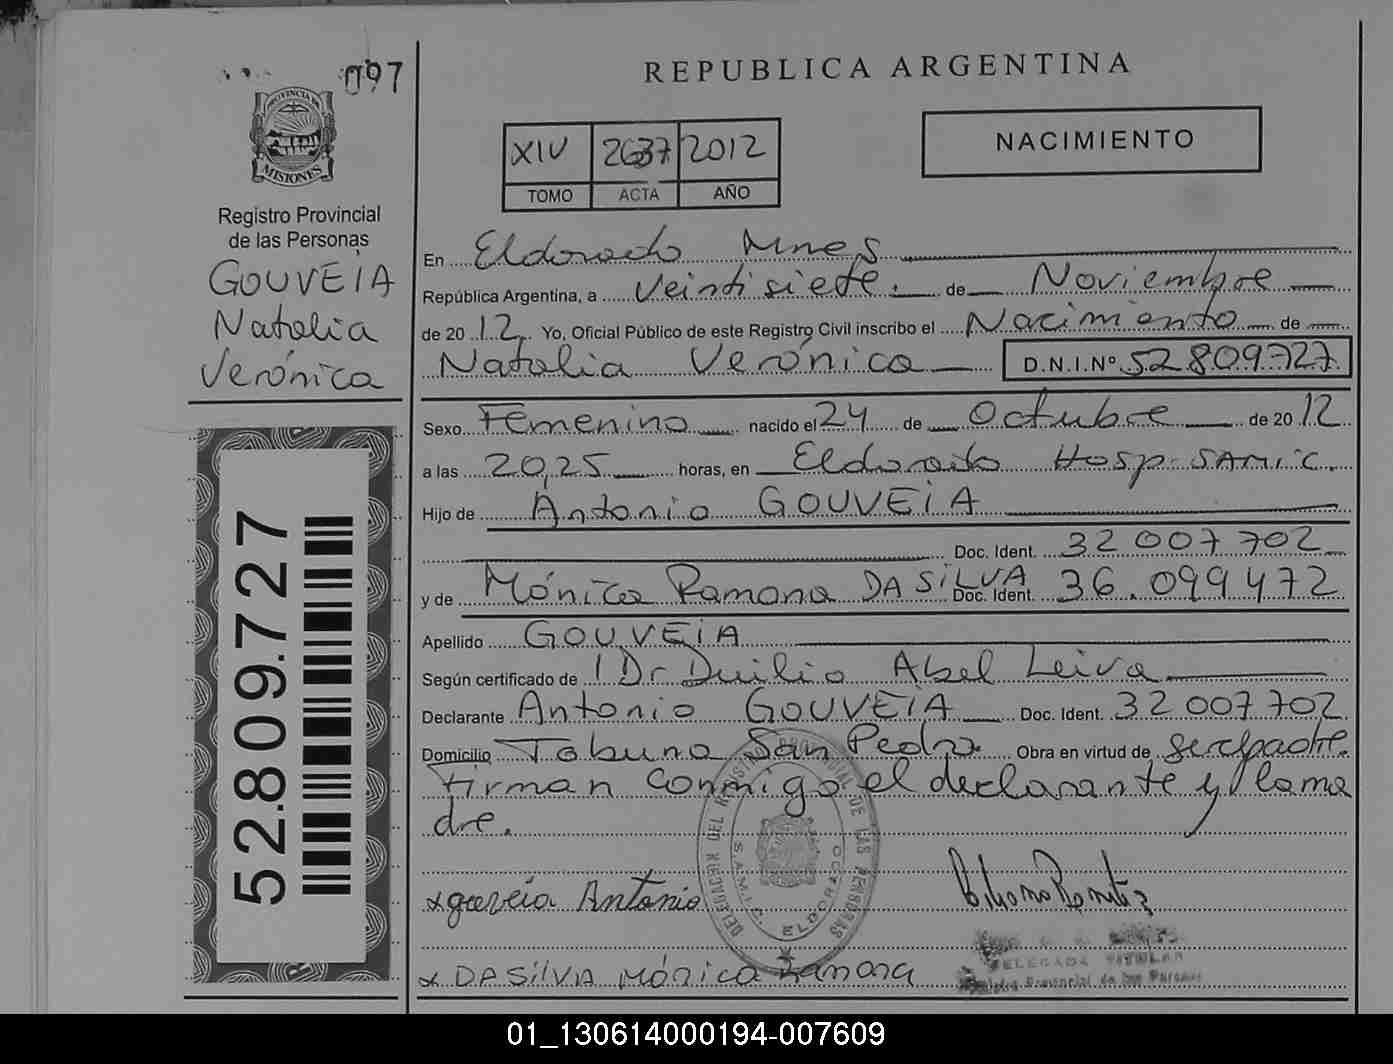 097
REPUBLICA ARGENTINA
PROVINCIA DE
MISIONES
Registro Provincial
de las Personas
GOUVEIA
Natalia
Verónica
XIV 2637 2012
TOMO ACTA AÑO
NACIMIENTO
En Eldorado Mnes
República Argentina, a Veintisiete. de Noviembre
de 2012, Yo, Oficial Público de este Registro Civil inscribo el Nacimiento de
Natalia Verónica D.N.I.Nº 52 809.727
Sexo Femenino nacido el 24 de Octubre de 2012
a las 20,25 horas, en Eldorado Hosp. SAMIC.
Hijo de Antonio GOUVEIA
Doc. Ident. 32 007 702
y de Mónica Ramona DA SILVA Doc. Ident. 36.099 472
Apellido GOUVEIA
Según certificado de Dr Duilio Abel Leiva
Declarante Antonio GOUVEIA Doc. Ident. 32 007 702
Domicilio Tobuna San Pedro. Obra en virtud de ser el padre.
Firman conmigo el declarante y la ma
dre.
52.809.727
x gouveia Antonio
x DA SILVA Mónica Ramona
S.A.M.I.C. ELDORADO
DELEGADA TITULAR
Registro Provincial de las Personas
01_130614000194-007609